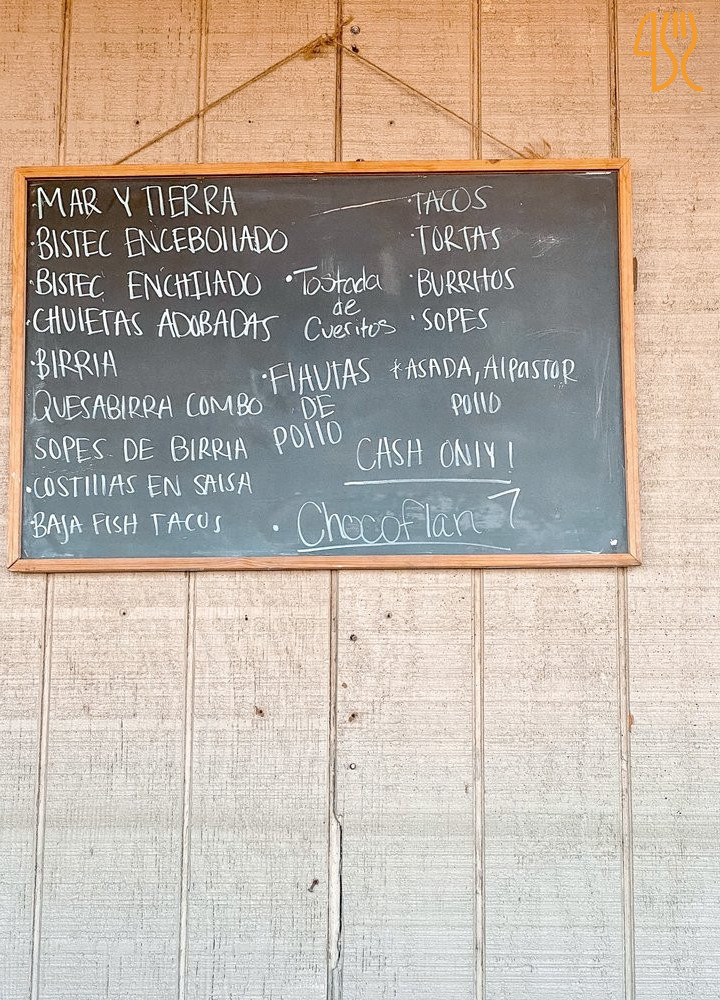 ·MAR Y TIERRA
·BISTEC ENCEBOllADO
·BISTEC ENCHIlADO
·CHUlETAS ADOBADAS
·BIRRIA
QUESABIRRA COMBO
SOPES DE BIRRIA
·COSTIllAS EN SAlSA
·BAJA FISH TACOS
·Tostada
de
Cueritos
·FlAUTAS
DE
POllO
·TACOS
·TORTAS
·BURRITOS
·SOPES
*ASADA, AlPASTOR
POllO
CASH ONlY!
·Chocoflan 7